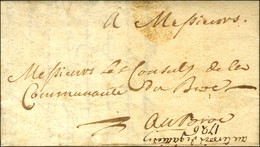 A Messieurs.
Messieurs Les Consuls de la
Communauté du Broc
Au Broc
1726